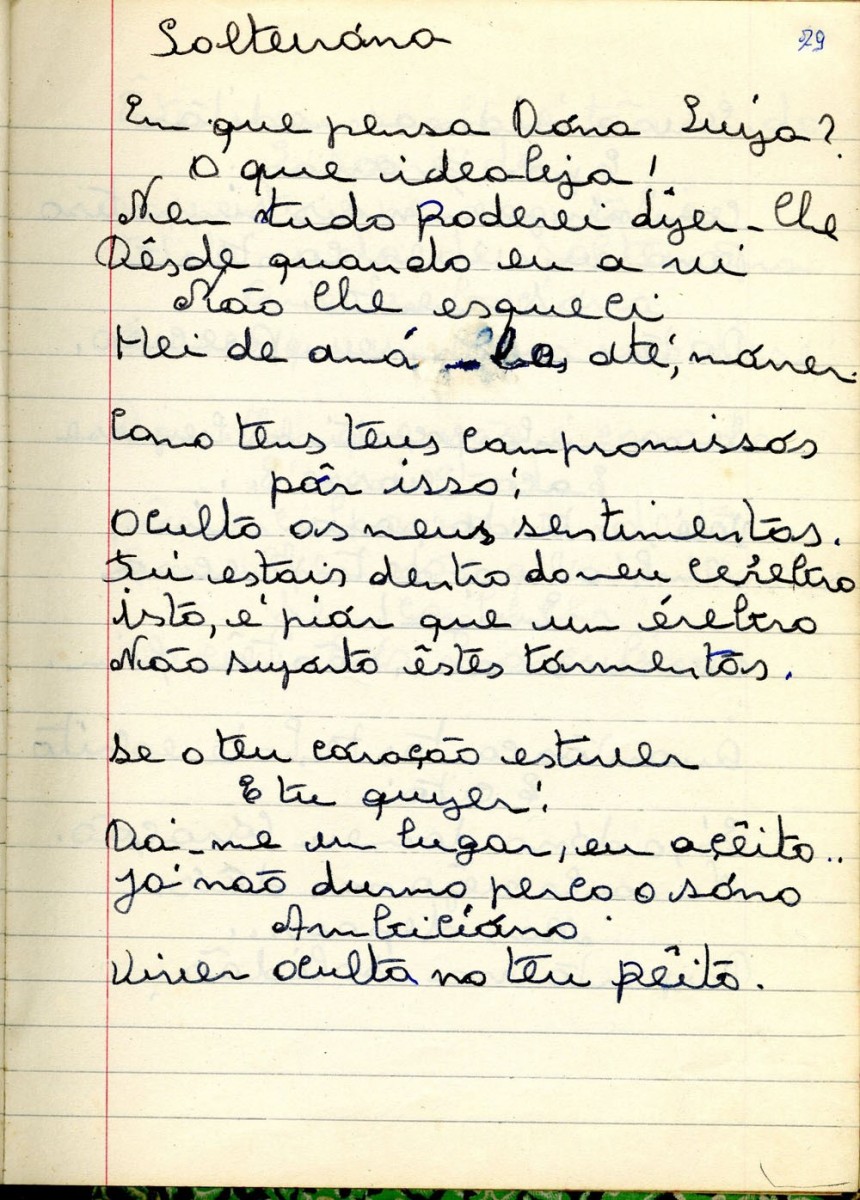 Solteiróna
29
Em que pensa Dóna Luiza?
O que idealiza!
Nem tudo poderei dizer-lhe
Dêsde quando eu a vi
Não lhe esqueci
Hei de amá-la, até, mórrer.
Como tens teus compromissós
pôr isso!
Oculto os meus sentimentos.
Tu estais dentro do meu cerébro
isto, é piór que um érebro
Não supórto êstes tórmentos.
Se o teu córação estiver
E tu quizer!
Dá-me um lugar, eu açêito..
Já não durmo perco o sóno
Ambicióno
Viver oculta no teu pêito.